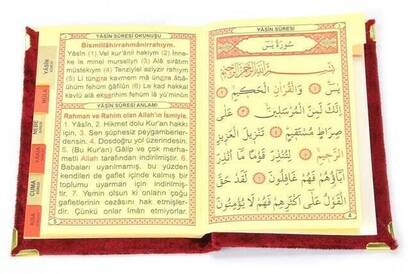 YÂSÎN SÛRESİ OKUNUŞU
Bismillâhirrahmânirrahîym.
Yâsîn (1) Vel kur'ânil hakiym (2) İnne-
ke le minel murseliyn (3) Alâ sırâtım
müstekıym (4) Tenziylel azîyzir rahıym
(5) Li tünzira kavmem mâ ünzira âbâ-
ühüm fehüm ğâfilûn (6) Le kad hakkal
kavlü alâ ekserihim fehüm lâ yü'minûn
YÂSÎN SÛRESİ ANLAMI
Rahman ve Rahim olan Allah'ın İsmiyle.
1. Yâsîn, 2. Hikmet dolu Kur'an hakkı
için, 3. Sen şüphesiz peygamberler-
densin. 4. Dosdoğru yol üzerindesin.
5. (Bu Kur'an) Gâlip ve çok merha-
metli Allah tarafından indirilmiştir. 6.
Babaları uyarılmamış, bu yüzden
kendileri de gaflet içinde kalmış bir
toplumu uyarman için indirilmiş-
tir. 7. Yemin olsun ki onların çoğu
gafletlerinin cezâsını hak etmişler-
dir. Çünkü onlar îmân etmiyorlar.
YÂSÎN
MÜLK
NEBE
CUMA
YÂSÎN SÛRESİ
سُورَةُ يٰسٓ
بِسْمِ اللّٰهِ الرَّحْمٰنِ الرَّحِيمِ
يٰسٓ ﴿١﴾ وَالْقُرْاٰنِ الْحَكِيمِ ﴿٢﴾
اِنَّكَ لَمِنَ الْمُرْسَلِينَ ﴿٣﴾ عَلٰى
صِرَاطٍ مُسْتَقِيمٍ ﴿٤﴾ تَنْزِيلَ الْعَزِيزِ
الرَّحِيمِ ﴿٥﴾ لِتُنْذِرَ قَوْمًا مَٓا اُنْذِرَ
اٰبَٓاؤُهُمْ فَهُمْ غَافِلُونَ ﴿٦﴾ لَقَدْ حَقَّ
الْقَوْلُ عَلٰٓى اَكْثَرِهِمْ فَهُمْ لَا يُؤْمِنُونَ
4